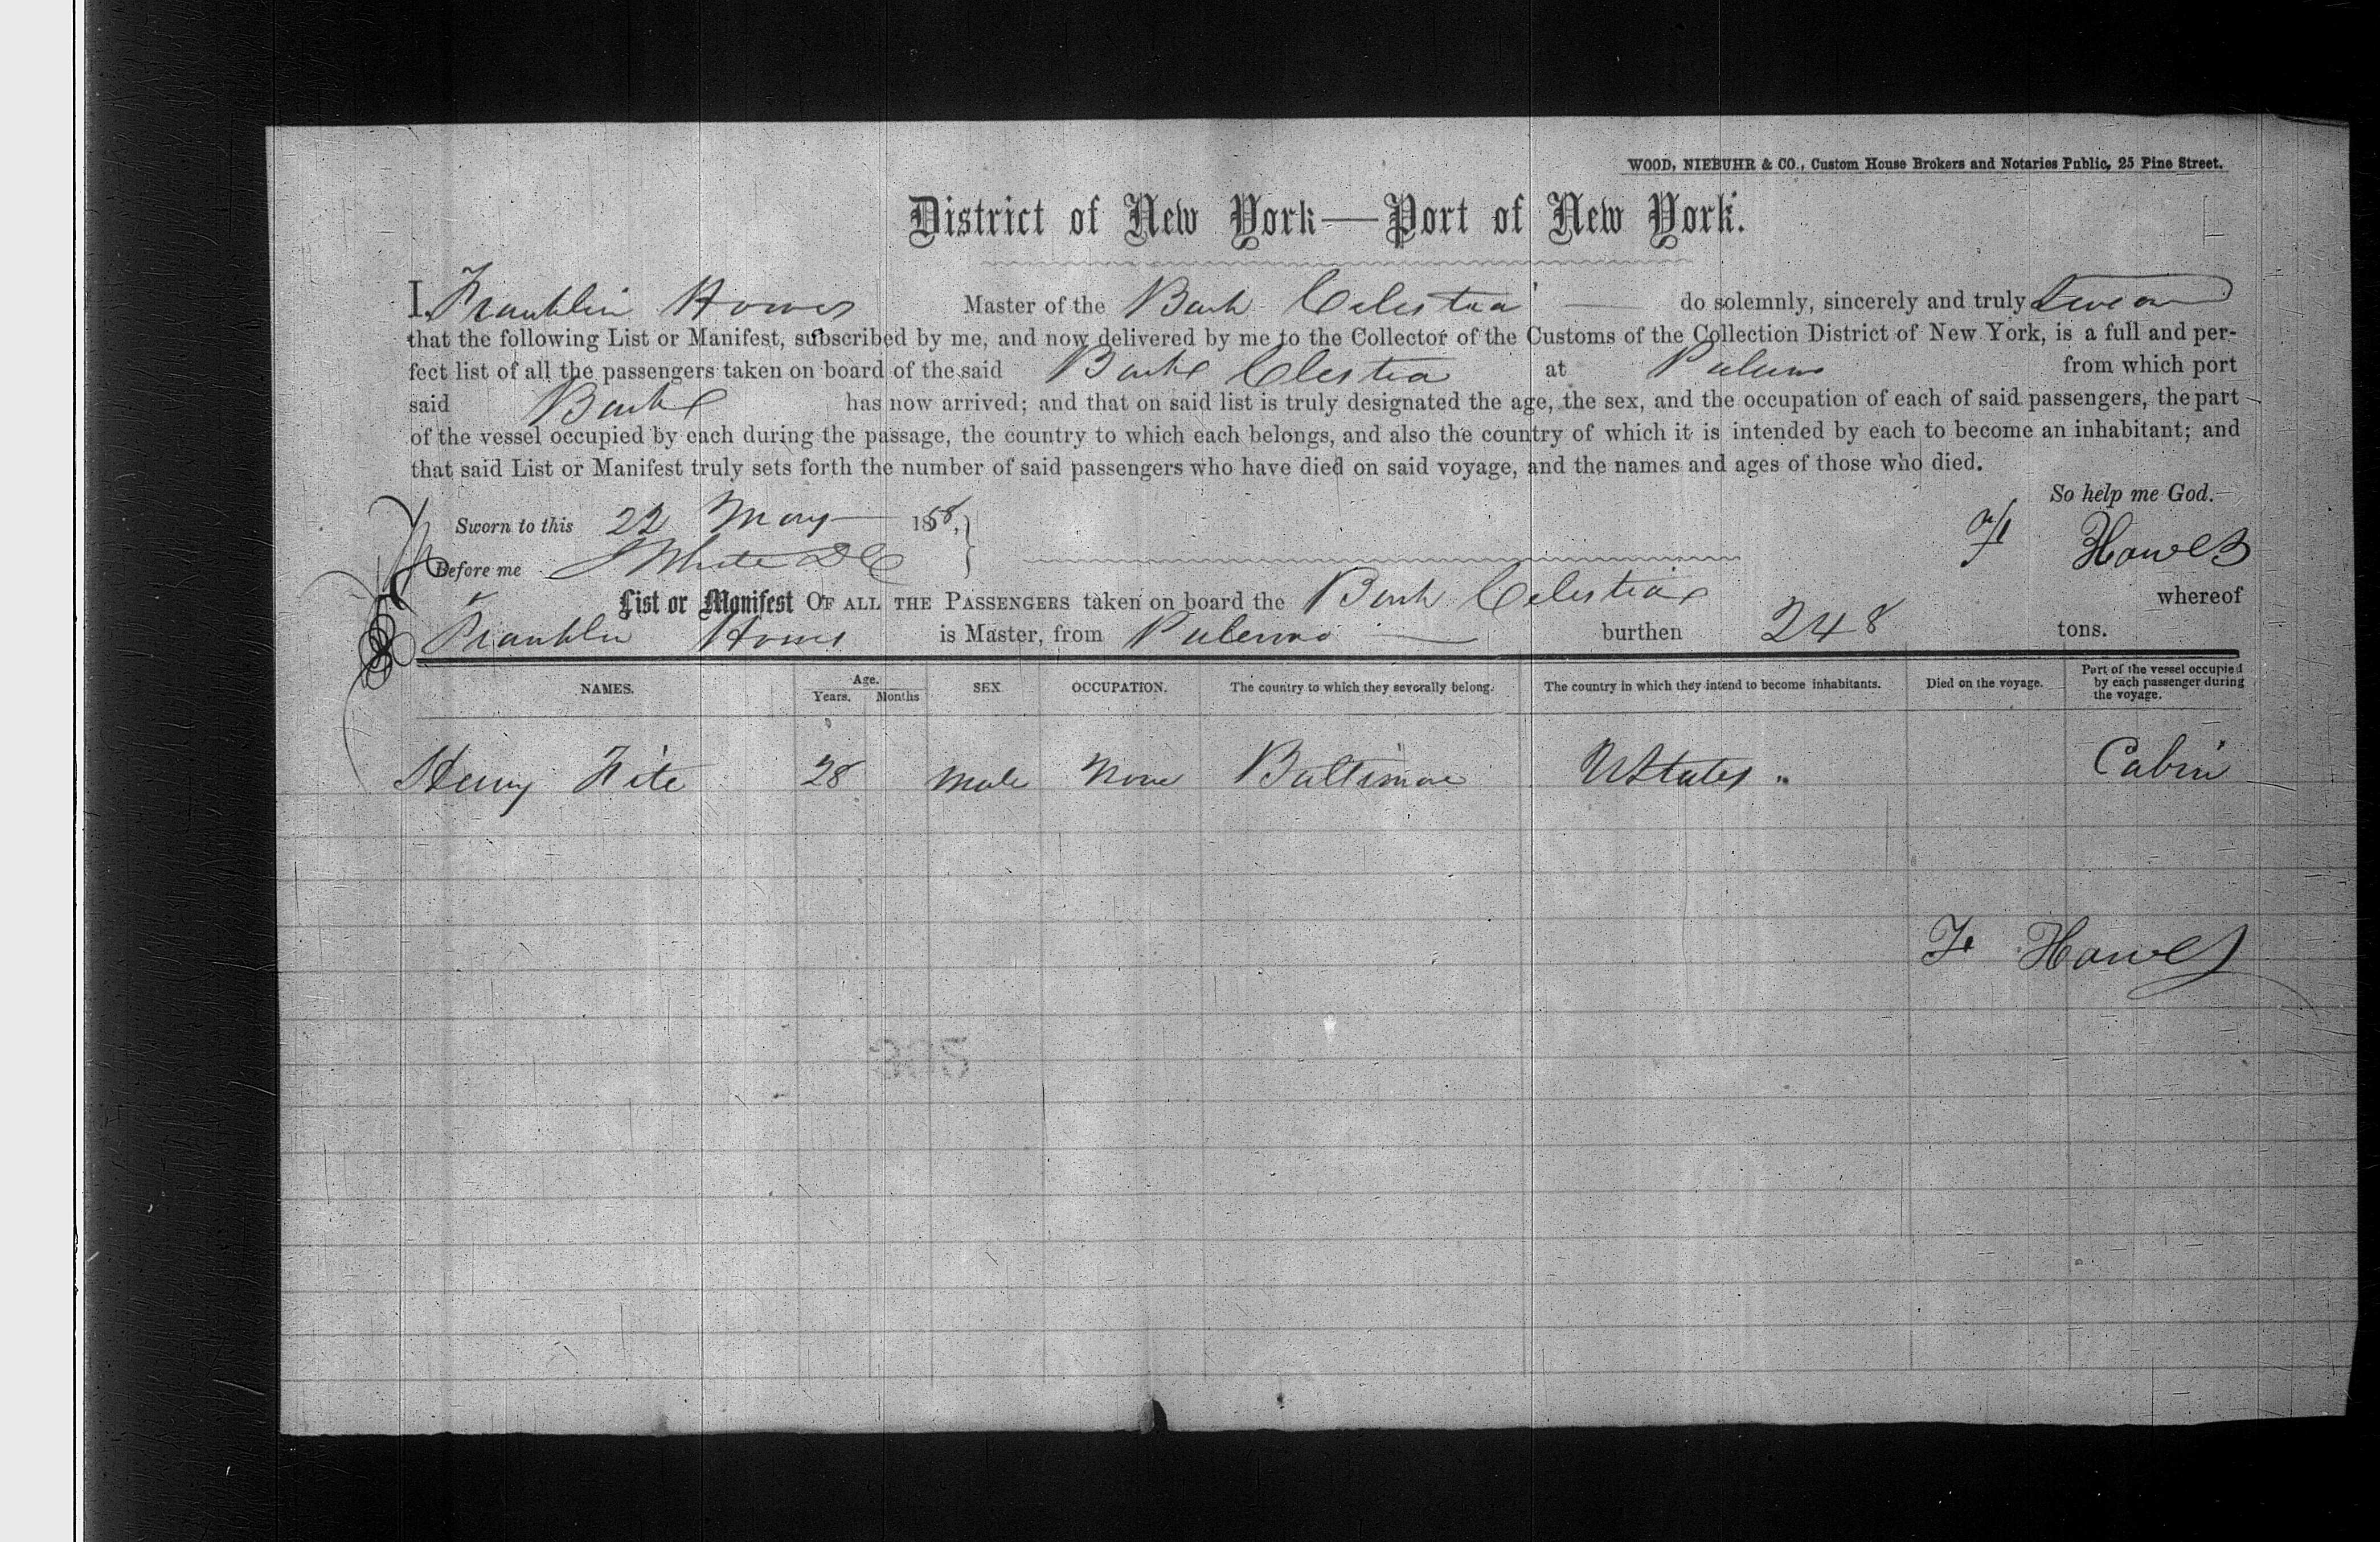 WOOD, NIEBUHR & CO., Custom House Brokers and Notaries Public, 25 Pine Street.
District of New York—Port of New York.
I, Franklin Howes Master of the Bark Celestia do solemnly, sincerely and truly swear
that the following List or Manifest, subscribed by me, and now delivered by me to the Collector of the Customs of the Collection District of New York, is a full and per-
fect list of all the passengers taken on board of the said Bark Celestia at Palermo from which port
said Bark has now arrived; and that on said list is truly designated the age, the sex, and the occupation of each of said passengers, the part
of the vessel occupied by each during the passage, the country to which each belongs, and also the country of which it is intended by each to become an inhabitant; and
that said List or Manifest truly sets forth the number of said passengers who have died on said voyage, and the names and ages of those who died.
So help me God.
Sworn to this 22 May 1858,
F Howes
Before me
List or Manifest OF ALL THE PASSENGERS taken on board the Bark Celestia whereof
Franklin Howes is Master, from Palermo burthen 248 tons.
NAMES. Age. Years. Months SEX OCCUPATION. The country to which they severally belong. The country in which they intend to become inhabitants. Died on the voyage. Part of the vessel occupied by each passenger during the voyage.
Henry Fite 28 Male None Baltimore UStates Cabin
F Howes